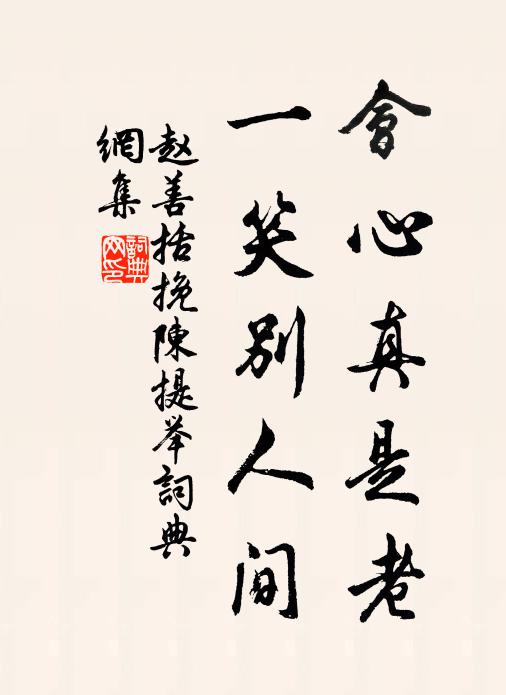 會心真是老
一笑别人间
赵善括挽陳提举詞典
網集
詞典
网印